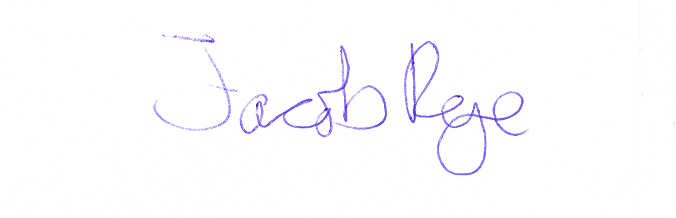 Jacob Rege